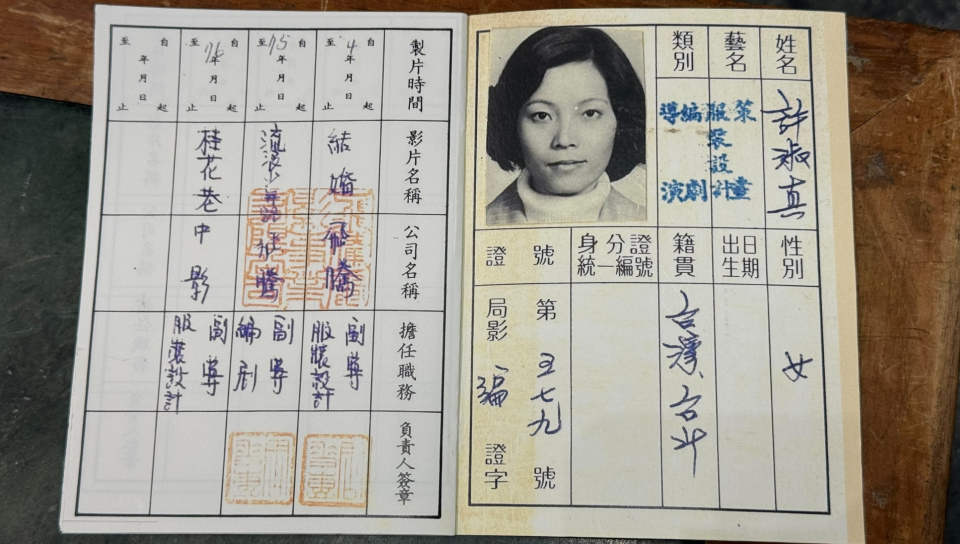 姓名
許淑真
藝名
類別
策畫
服裝設計
編劇
導演
性別
女
出生日期
籍貫
身分證統一編號
證號
第五七九號
局影編證字
製片時間
影片名稱
公司名稱
擔任職務
負責人簽章
自 年月日起
至 4 止
結婚
飛騰
副導
服裝設計
自 年月日起
至 75 止
飛騰
副導
編劇
自 年月日起
至 76 止
桂花巷
中影
副導
服裝設計
自 年月日起
至 止